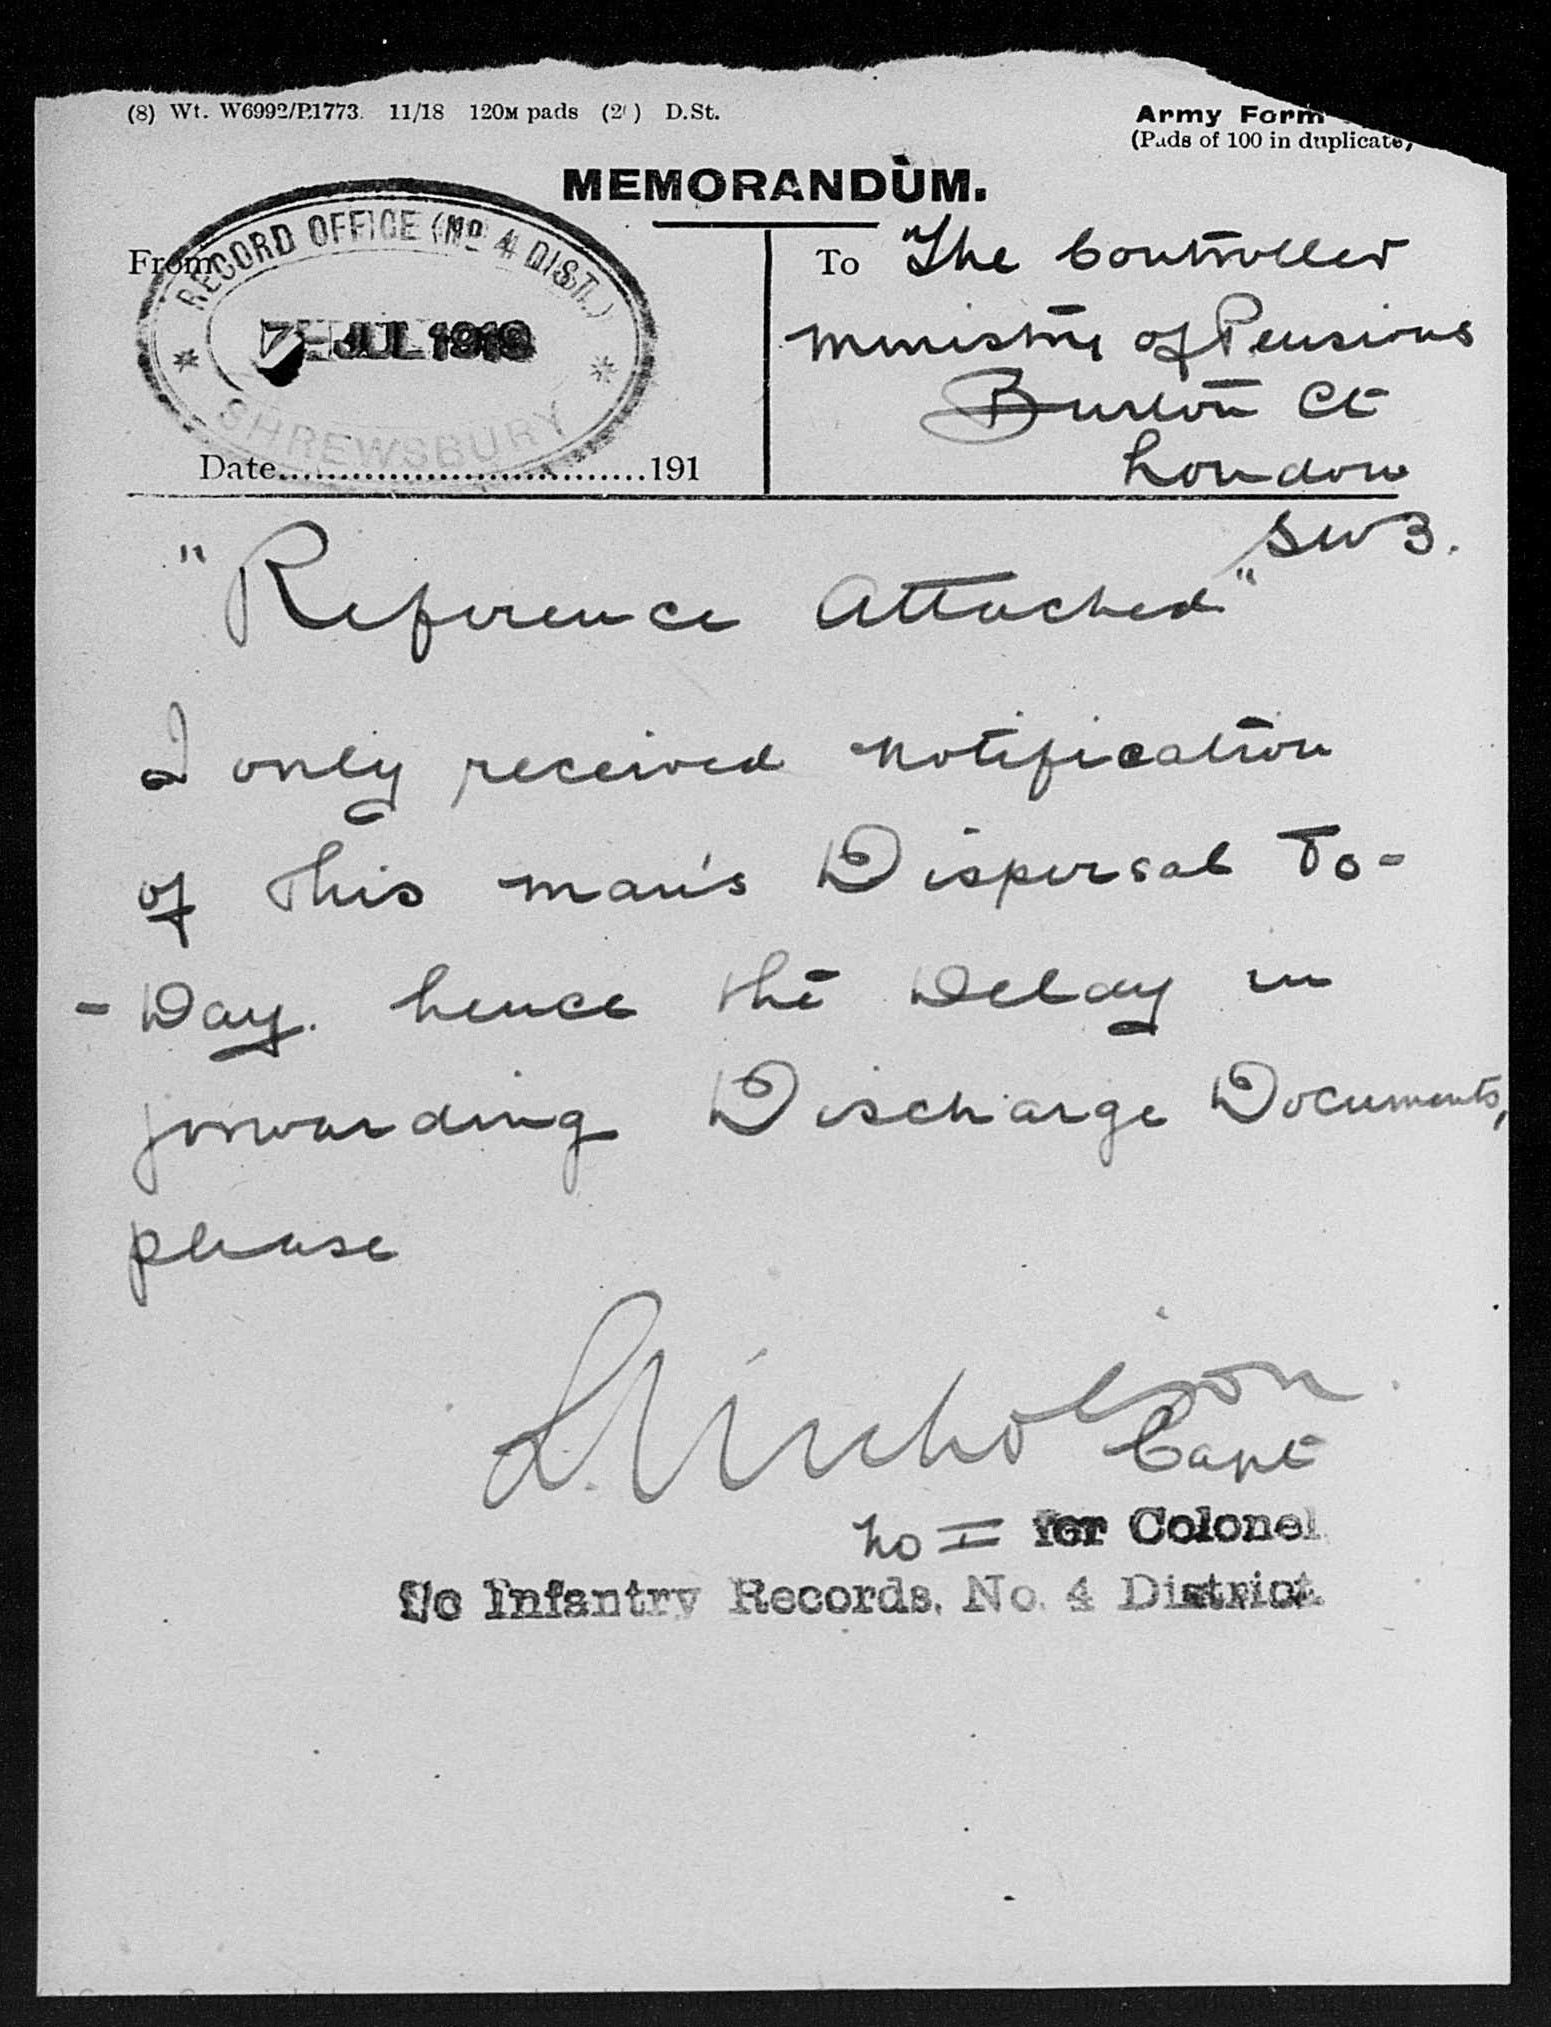 (8) Wt. W6992/P.1773. 11/18 120M pads (2 ) D.St.
Army Form
(Pads of 100 in duplicate)
MEMORANDUM.
From
RECORD OFFICE (No 4 DIST.)
7 - JUL 1919
SHREWSBURY
Date 191
To The Controller
Ministry of Pensions
Burton Ct
London
SW3.
"Reference Attached"
I only received notification
of this man's Dispersal To-
- Day. hence the Delay in
forwarding Discharge Documents,
please
Nicholson
Capt
for Colonel
I/c Infantry Records. No. 4 District